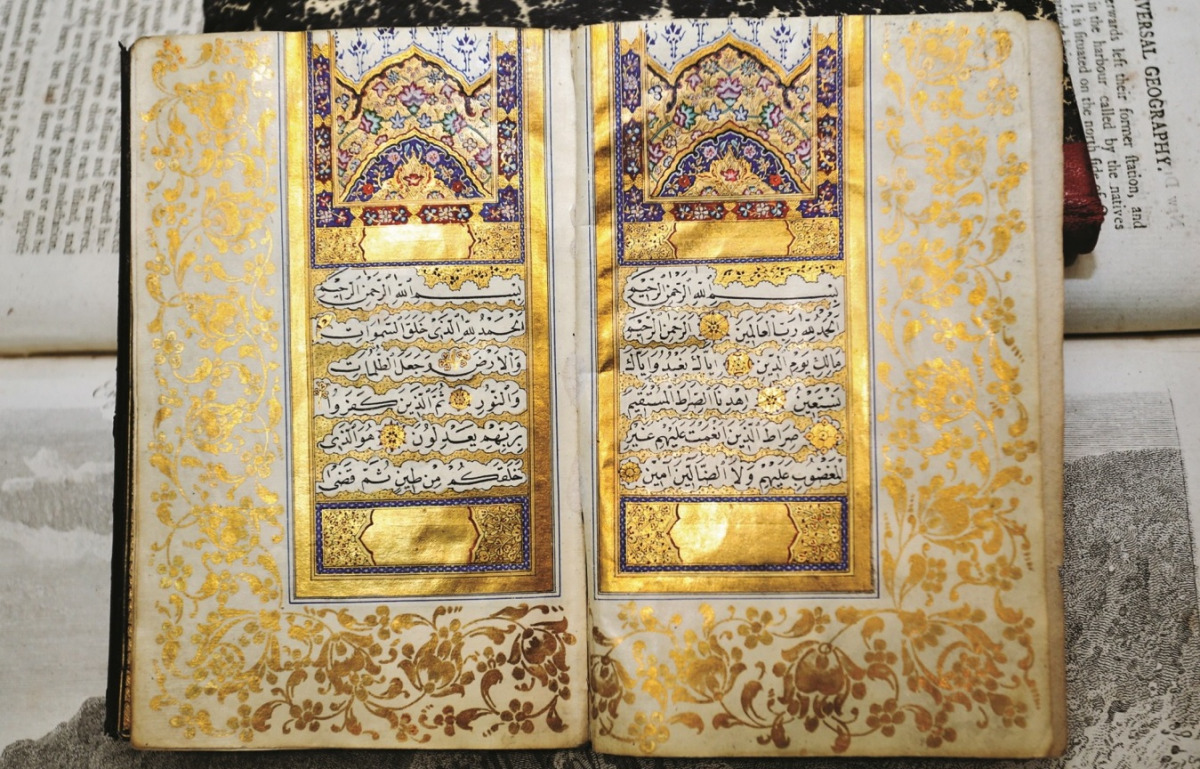 بسم الله الرحمن الرحيم
الحمد لله رب العالمين الرحمن الرحيم
مالك يوم الدين اياك نعبد واياك
نستعين اهدنا الصراط المستقيم
صراط الذين انعمت عليهم غير
المغضوب عليهم ولا الضالين امين
بسم الله الرحمن الرحيم
الحمد لله الذي خلق السموات
والارض وجعل الظلمات
والنور ثم الذين كفروا
بربهم يعدلون هو الذي
خلقكم من طين ثم قضى
VERSAL GEOGRAPHY.
erwards left their former ſtation, and
in the harbour called by the natives
It is ſituated on the north ſide of